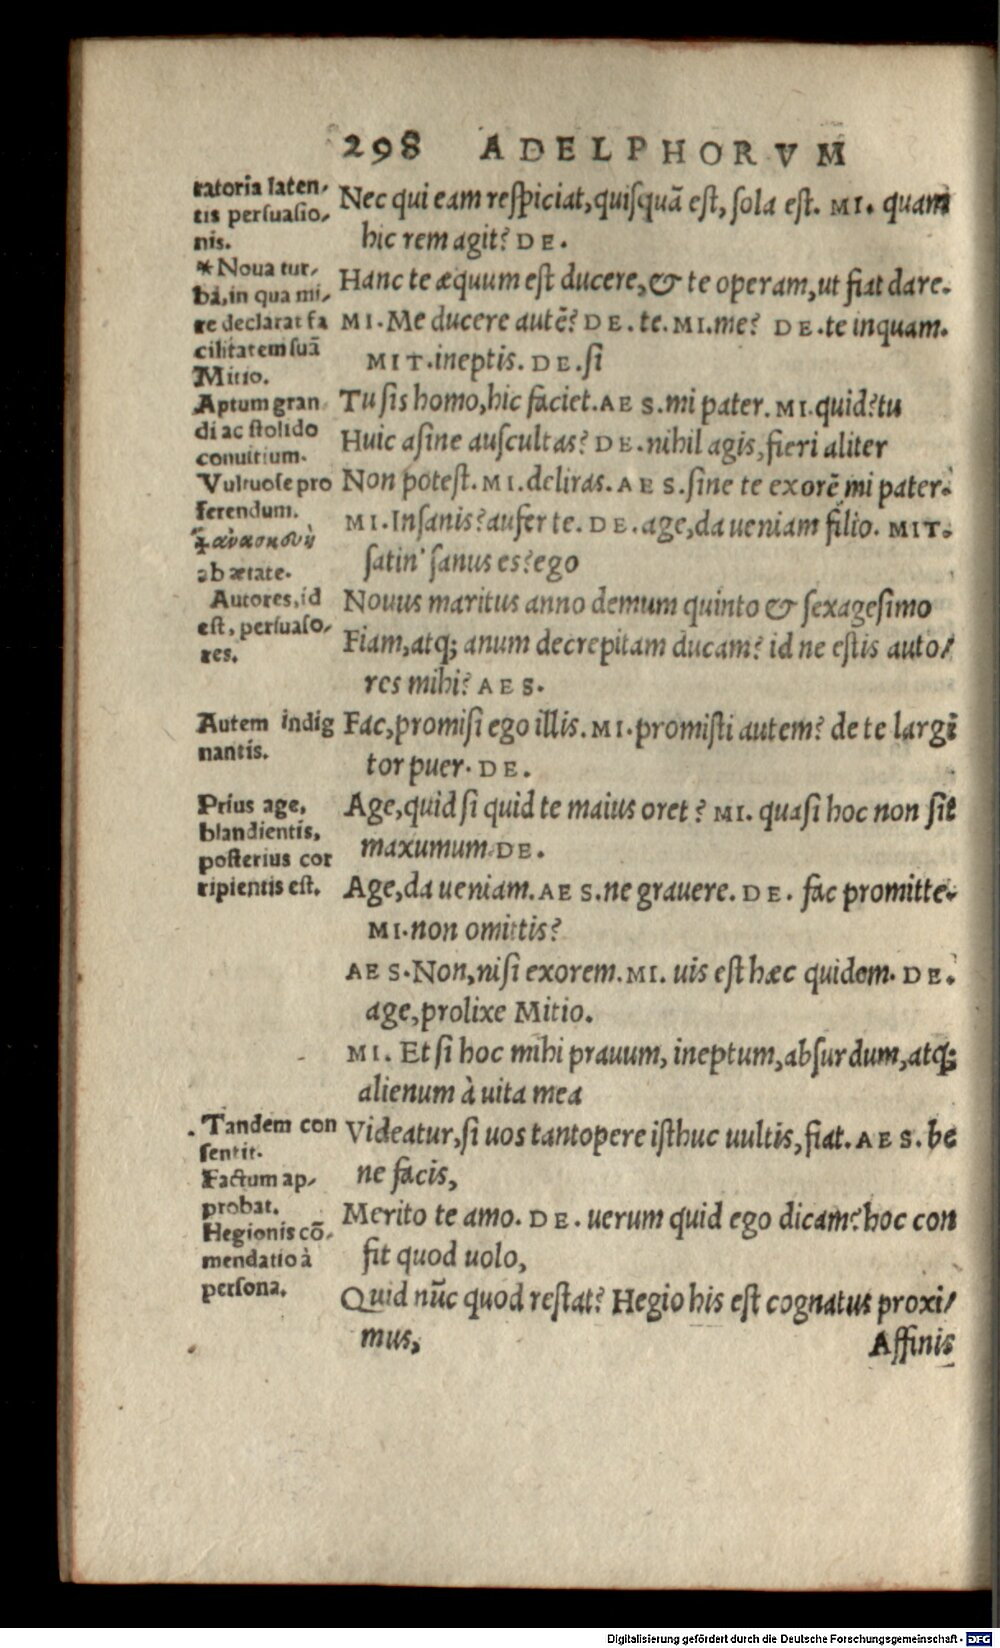 298 ADELPHORVM
ratoria laten-
tis persuasio-
nis.
*Noua tur-
ba, in qua mi-
re declarat fa
cilitatem suã
Mitio.
Aptum gran
di ac stolido
conuitium.
Vultuose pro
ferendum.
ab ætate.
Autores, id
est, persuaso-
res.
Autem indig
nantis.
Prius age,
blandientis,
posterius cor
ripientis est.
Tandem con
sentit.
Factum ap-
probat.
Hegionis cõ-
mendatio à
persona.
Nec qui eam respiciat, quisquã est, sola est. MI. quam
hic rem agit? DE.
Hanc te æquum est ducere, & te operam, ut fiat dare.
MI. Me ducere autẽ? DE. te. MI. me? DE. te inquam.
MIT. ineptis. DE. si
Tu sis homo, hic faciet. AES. mi pater. MI. quid? tu
Huic asine auscultas? DE. nihil agis, fieri aliter
Non potest. MI. deliras. AES. sine te exorẽ mi pater.
MI. Insanis? aufer te. DE. age, da ueniam filio. MIT.
satin' sanus es? ego
Nouus maritus anno demum quinto & sexagesimo
Fiam, atq; anum decrepitam ducam? id ne estis auto-
res mihi? AES.
Fac, promisi ego illis. MI. promisti autem? de te largĩ
tor puer. DE.
Age, quid si quid te maius oret? MI. quasi hoc non sit
maxumum. DE.
Age, da ueniam. AES. ne grauere. DE. fac promitte.
MI. non omittis?
AES. Non, nisi exorem. MI. uis est hæc quidem. DE.
age, prolixe Mitio.
MI. Et si hoc mihi prauum, ineptum, absurdum, atq;
alienum à uita mea
Videatur, si uos tantopere isthuc uultis, fiat. AES. be
ne facis,
Merito te amo. DE. uerum quid ego dicam? hoc con
fit quod uolo,
Quid nũc quod restat? Hegio his est cognatus proxi-
mus,
Affinis
Digitalisierung gefördert durch die Deutsche Forschungsgemeinschaft - DFG